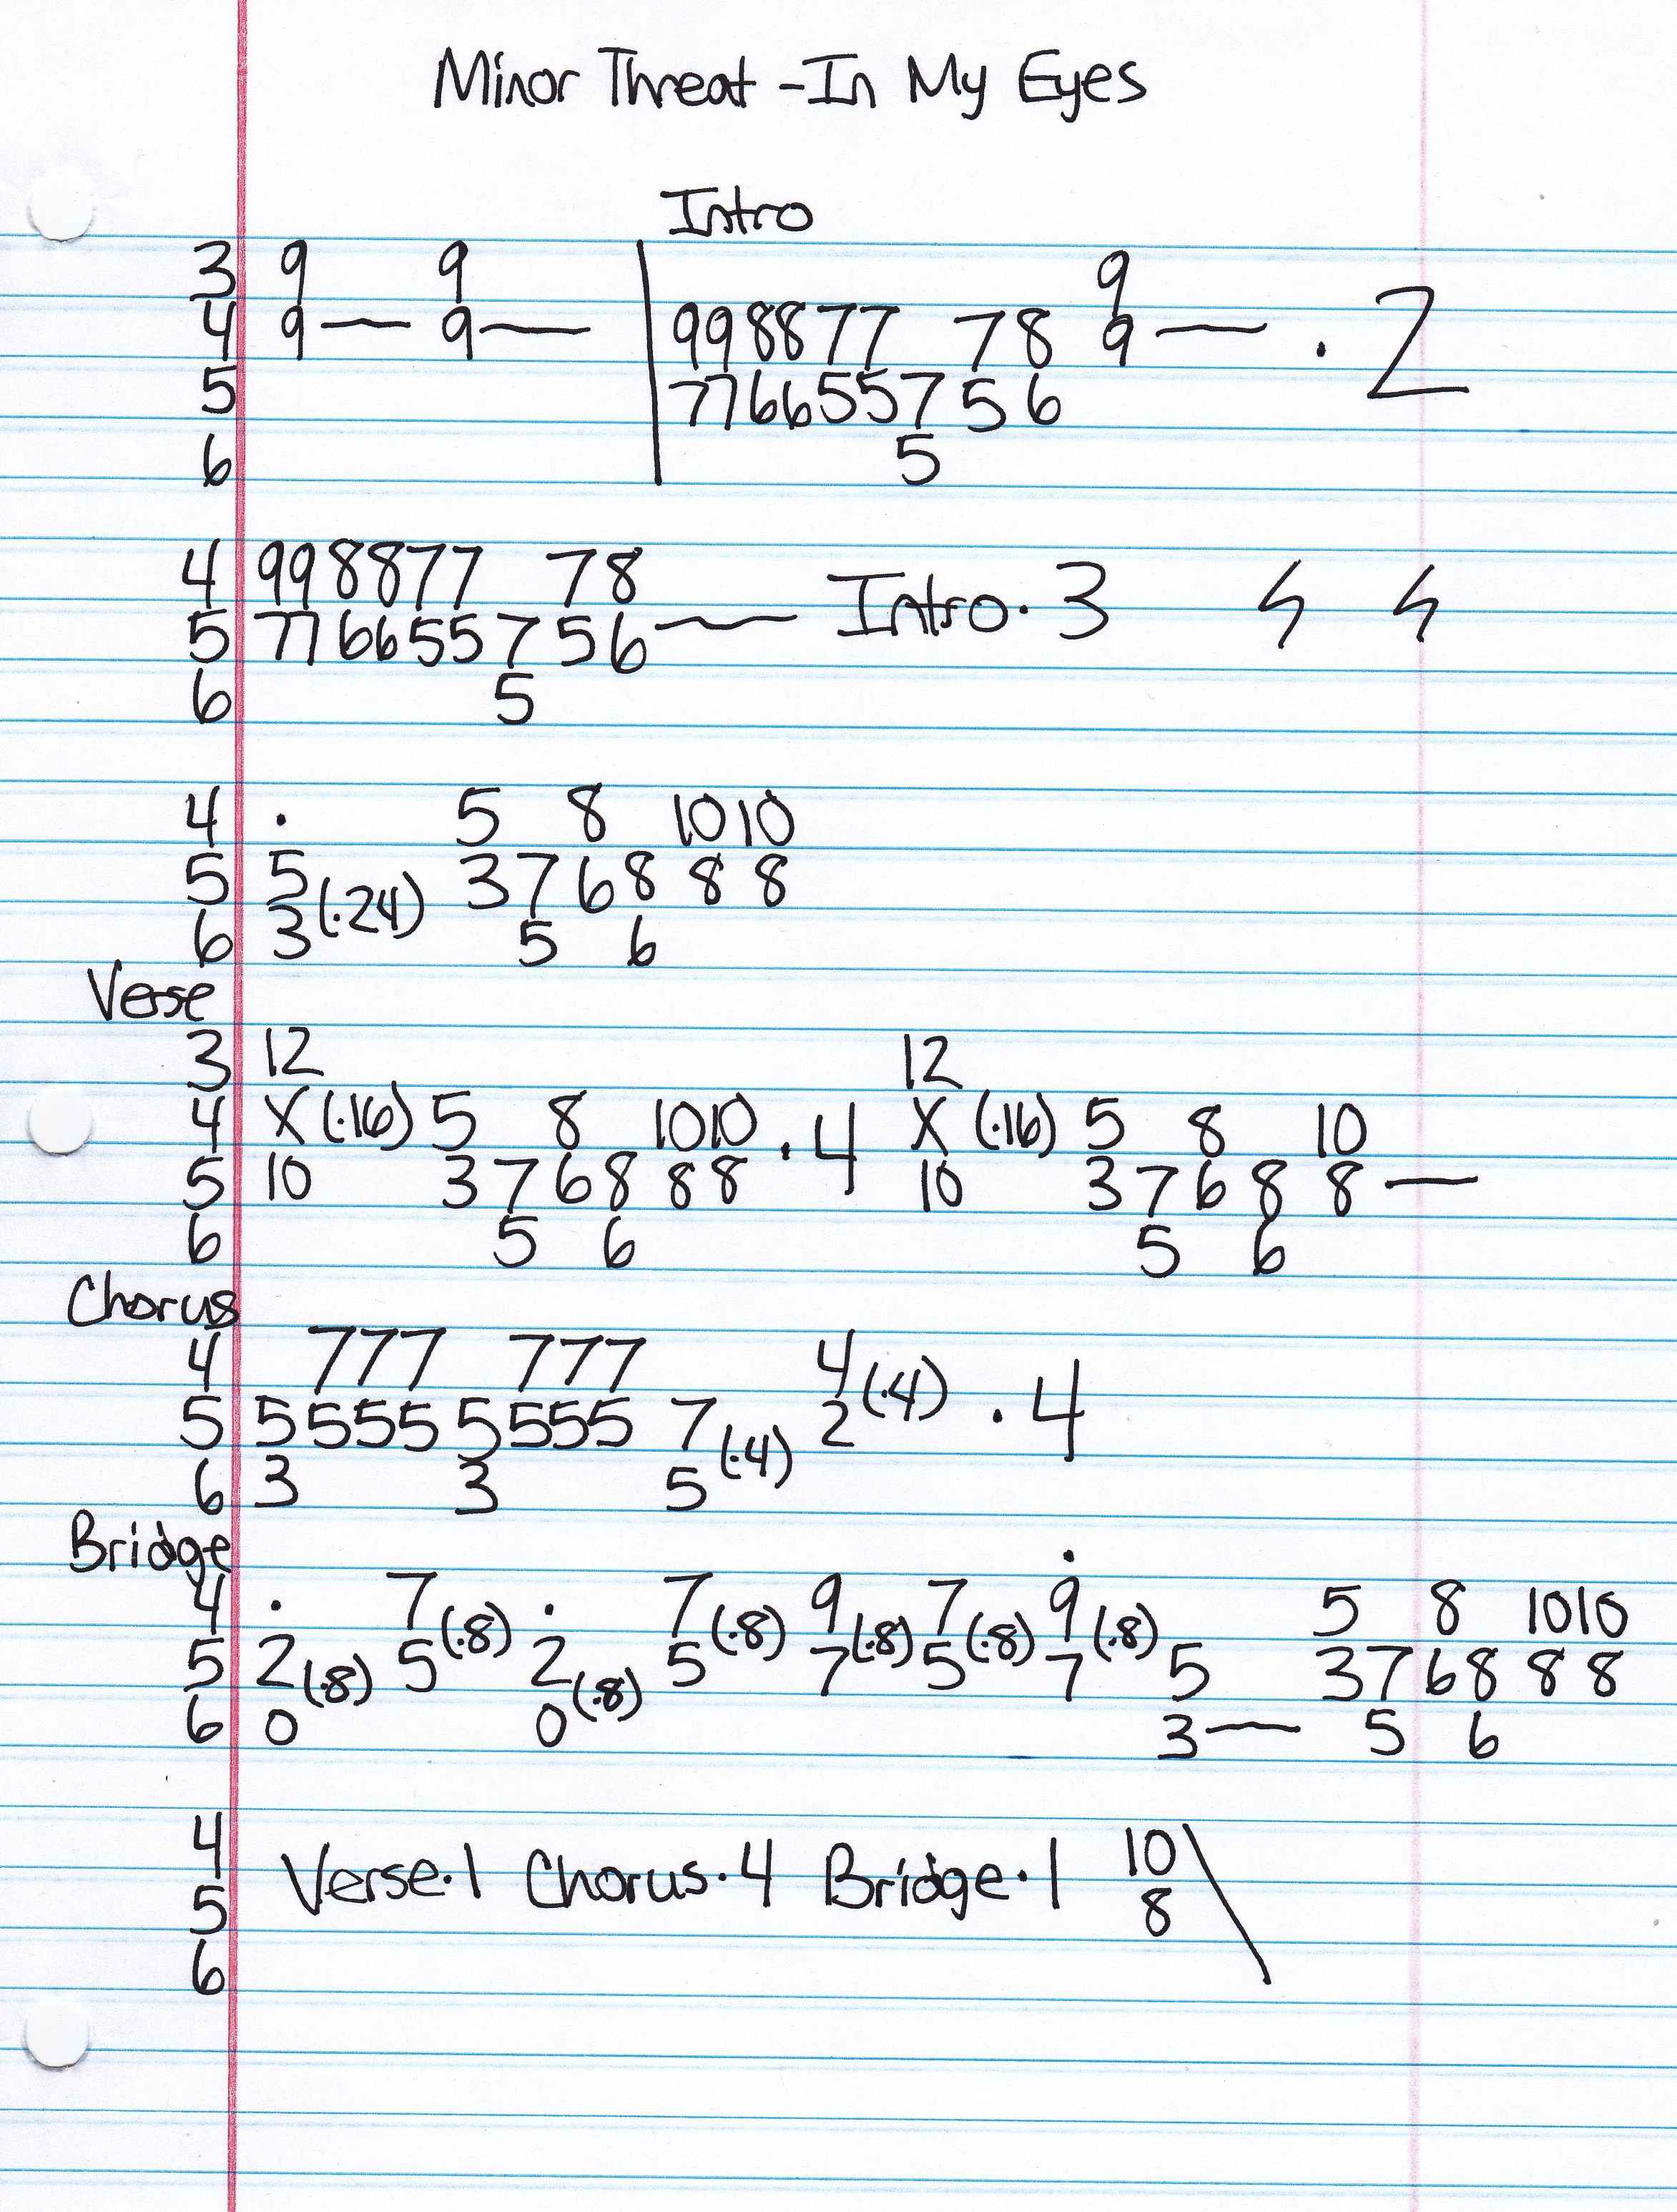 Minor Threat - In My Eyes
Intro
3 9 9 9
4 9— 9— | 998877 78 9— · 2
5 7766557 5 6
6 5
4 998877 78
5 7766557 5 6 — Intro · 3 ϟ ϟ
6 5
4 · 5 8 10 10
5 5 3 7 6 8 8 8
6 3 (·24) 5 6
Verse
3 12 12
4 X (·16) 5 8 10 10 · 4 X (·16) 5 8 10
5 10 3 7 6 8 8 8 10 3 7 6 8 8—
6 5 6 5 6
Chorus
4 777 777 4
5 5 555 5 555 7 2 (·4) · 4
6 3 3 5 (·4)
Bridge
4 · 7 · 7 9 7 9 5 8 10 10
5 2 5 (·8) 2 5 (·8) 7 (·8) 5 (·8) 7 (·8) 5 3 7 6 8 8 8
6 0 (·8) 0 (·8) 3— 5 6
4 10 \
5 Verse · 1 Chorus · 4 Bridge · 1 8
6